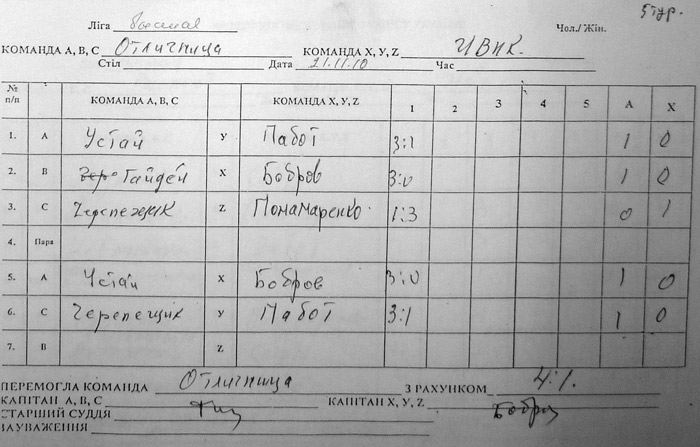 5 тур.
Ліга Высшая Чол./ Жін.
КОМАНДА А, В, С Отличница КОМАНДА X, У, Z ИВИК.
Стіл Дата 21.11.10 Час
№ п/п КОМАНДА А, В, С КОМАНДА X, У, Z 1 2 3 4 5 А X
1. А Устай У Пабот 3:1 1 0
2. В Гайдей X Бобров 3:0 1 0
3. С Черепежик Z Понамаренко 1:3 0 1
4. Пара
5. А Устай X Бобров 3:0 1 0
6. С Черепещик У Пабот 3:1 1 0
7. В Z
ПЕРЕМОГЛА КОМАНДА Отличница З РАХУНКОМ 4:1.
КАПІТАН А, В, С КАПІТАН X, У, Z Бобров
СТАРШИЙ СУДДЯ
ЗАУВАЖЕННЯ